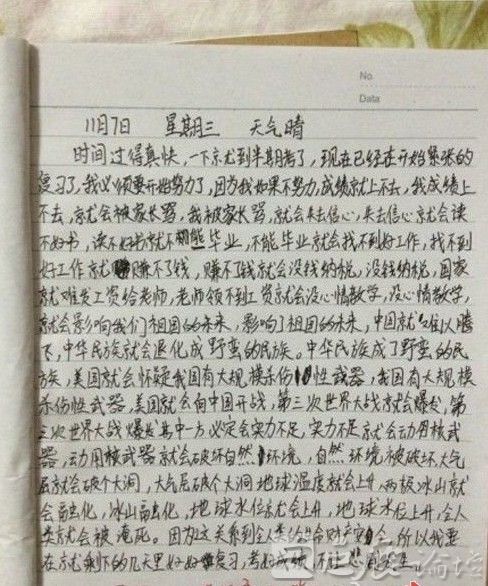 No.
Data
11月7日 星期三 天气晴
时间过得真快,一下就到半期考了,现在已经在开始紧张的
复习了,我必须要开始努力了,因为我如果不努力,成绩就上不去,我成绩上
不去,就会被家长骂,我被家长骂,就会失去信心,失去信心就会读
不好书,读不好书就不能毕业,不能毕业就会找不到好工作,找不到
好工作就赚不了钱,赚不了钱就会没钱纳税,没钱纳税,国家
就难发工资给老师,老师领不到工资就会没心情教学,没心情教学,
就会影响我们祖国的未来,影响了祖国的未来,中国就难以腾
飞,中华民族就会退化成野蛮的民族。中华民族成了野蛮的民
族,美国就会怀疑我国有大规模杀伤性武器,我国有大规模
杀伤性武器,美国就会向中国开战,第三次世界大战就会爆发,第
三次世界大战爆发其中一方必定会实力不足,实力不足就会动用核武
器,动用核武器就会破坏自然环境,自然环境被破坏,大气
层就会破个大洞,大气层破个大洞地球温度就会上升,两极冰山就
会融化,冰山融化,地球水位就会上升,地球水位上升,全人
类就会被淹死。因为这关系到全人类的生命财产安全,所以我要
在就剩下的几天里好好复习,考好成绩,不让悲剧发生。
论坛